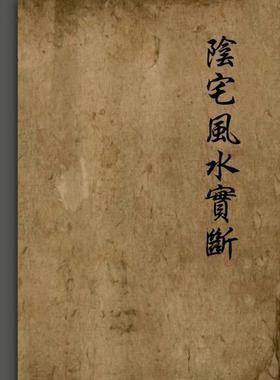 陰宅風水實斷